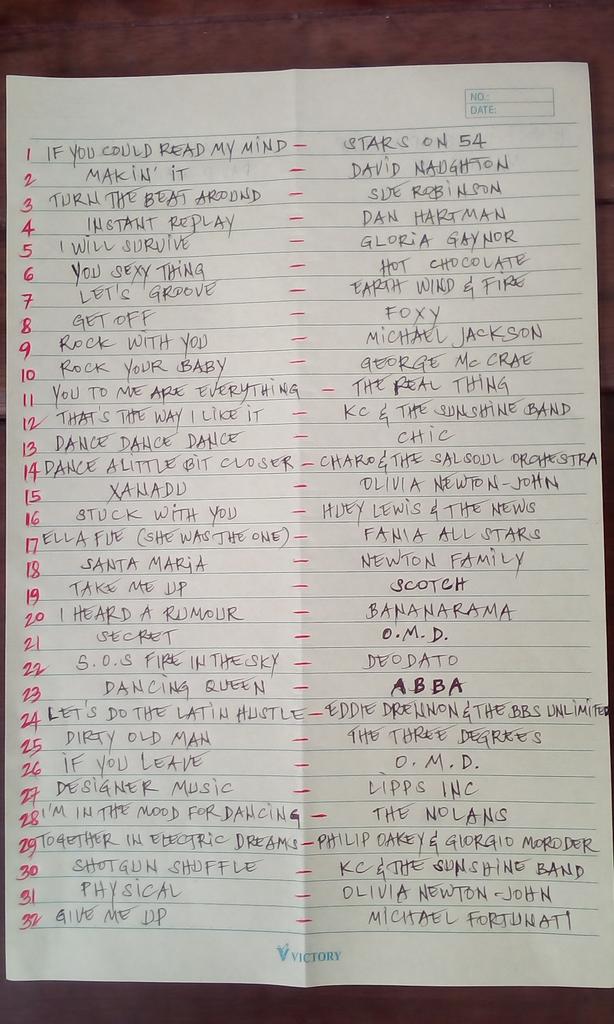 NO.:
DATE:
1 IF YOU COULD READ MY MIND – STARS ON 54
2 MAKIN' IT – DAVID NAUGHTON
3 TURN THE BEAT AROUND – SUE ROBINSON
4 INSTANT REPLAY – DAN HARTMAN
5 I WILL SURVIVE – GLORIA GAYNOR
6 YOU SEXY THING – HOT CHOCOLATE
7 LET'S GROOVE – EARTH WIND & FIRE
8 GET OFF – FOXY
9 ROCK WITH YOU – MICHAEL JACKSON
10 ROCK YOUR BABY – GEORGE Mc CRAE
11 YOU TO ME ARE EVERYTHING – THE REAL THING
12 THAT'S THE WAY I LIKE IT – KC & THE SUNSHINE BAND
13 DANCE DANCE DANCE – CHIC
14 DANCE A LITTLE BIT CLOSER – CHARO & THE SALSOUL ORCHESTRA
15 XANADU – OLIVIA NEWTON-JOHN
16 STUCK WITH YOU – HUEY LEWIS & THE NEWS
17 ELLA FUE (SHE WAS THE ONE) – FANIA ALL STARS
18 SANTA MARIA – NEWTON FAMILY
19 TAKE ME UP – SCOTCH
20 I HEARD A RUMOUR – BANANARAMA
21 SECRET – O.M.D.
22 S.O.S FIRE IN THE SKY – DEODATO
23 DANCING QUEEN – ABBA
24 LET'S DO THE LATIN HUSTLE – EDDIE DRENNON & THE BBS UNLIMITED
25 DIRTY OLD MAN – THE THREE DEGREES
26 IF YOU LEAVE – O.M.D.
27 DESIGNER MUSIC – LIPPS INC
28 I'M IN THE MOOD FOR DANCING – THE NOLANS
29 TOGETHER IN ELECTRIC DREAMS – PHILIP OAKEY & GIORGIO MORODER
30 SHOTGUN SHUFFLE – KC & THE SUNSHINE BAND
31 PHYSICAL – OLIVIA NEWTON-JOHN
32 GIVE ME UP – MICHAEL FORTUNATI
VICTORY